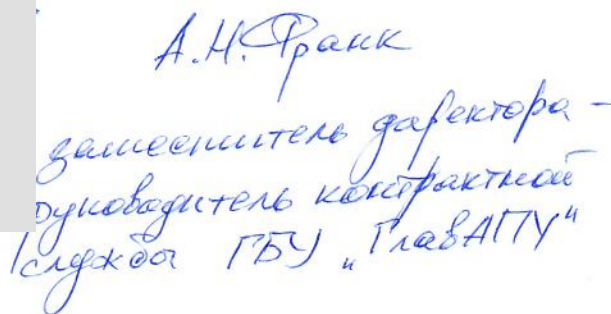 А.Н. Франк
заместитель директора -
руководитель контрактной
службы ГБУ „ГлавАПУ"